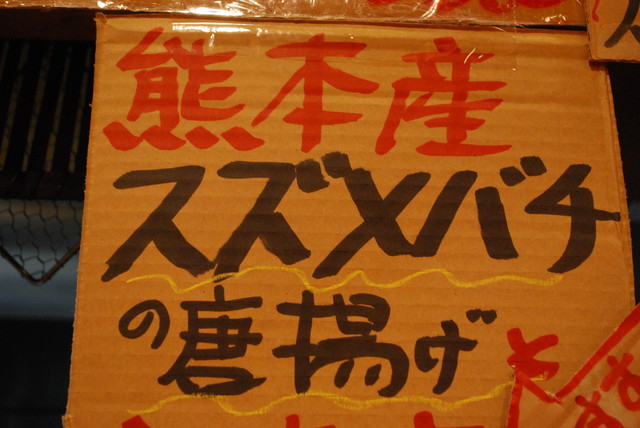 熊本産
スズメバチ
の唐揚げ